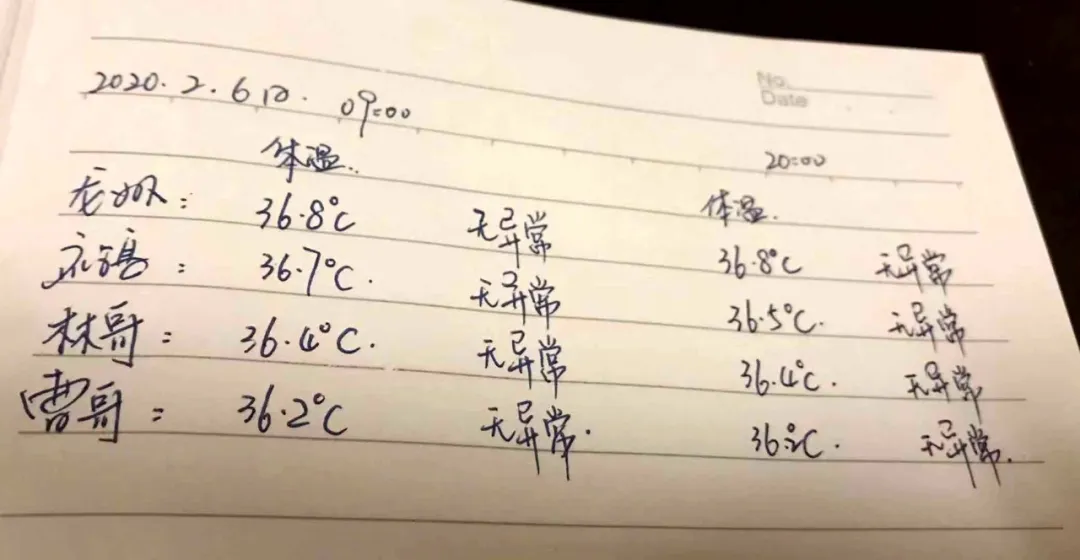 No.
Date
2020.2.6日. 09:00
20:00
体温.. 体温.
: 36.8℃ 无异常 36.8℃ 无异常
: 36.7℃. 无异常 36.5℃. 无异常
林哥: 36.4℃. 无异常 36.4℃. 无异常
曹哥: 36.2℃ 无异常. 36.2℃. 无异常.